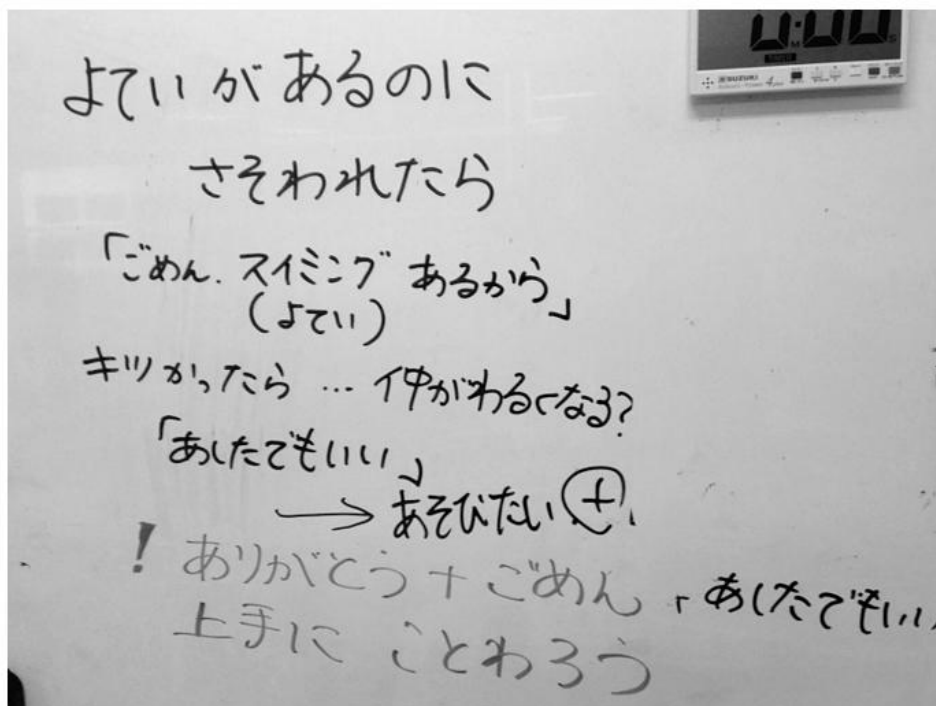 0:00
M S
TIMER
SUZUKI
よていがあるのに
さそわれたら
「ごめん. スイミング あるから」
(よてい)
キツかったら … 仲がわるくなる?
「あしたでもいい」
→ あそびたい ⊕.
! ありがとう + ごめん 「あしたでもいい
上手に ことわろう